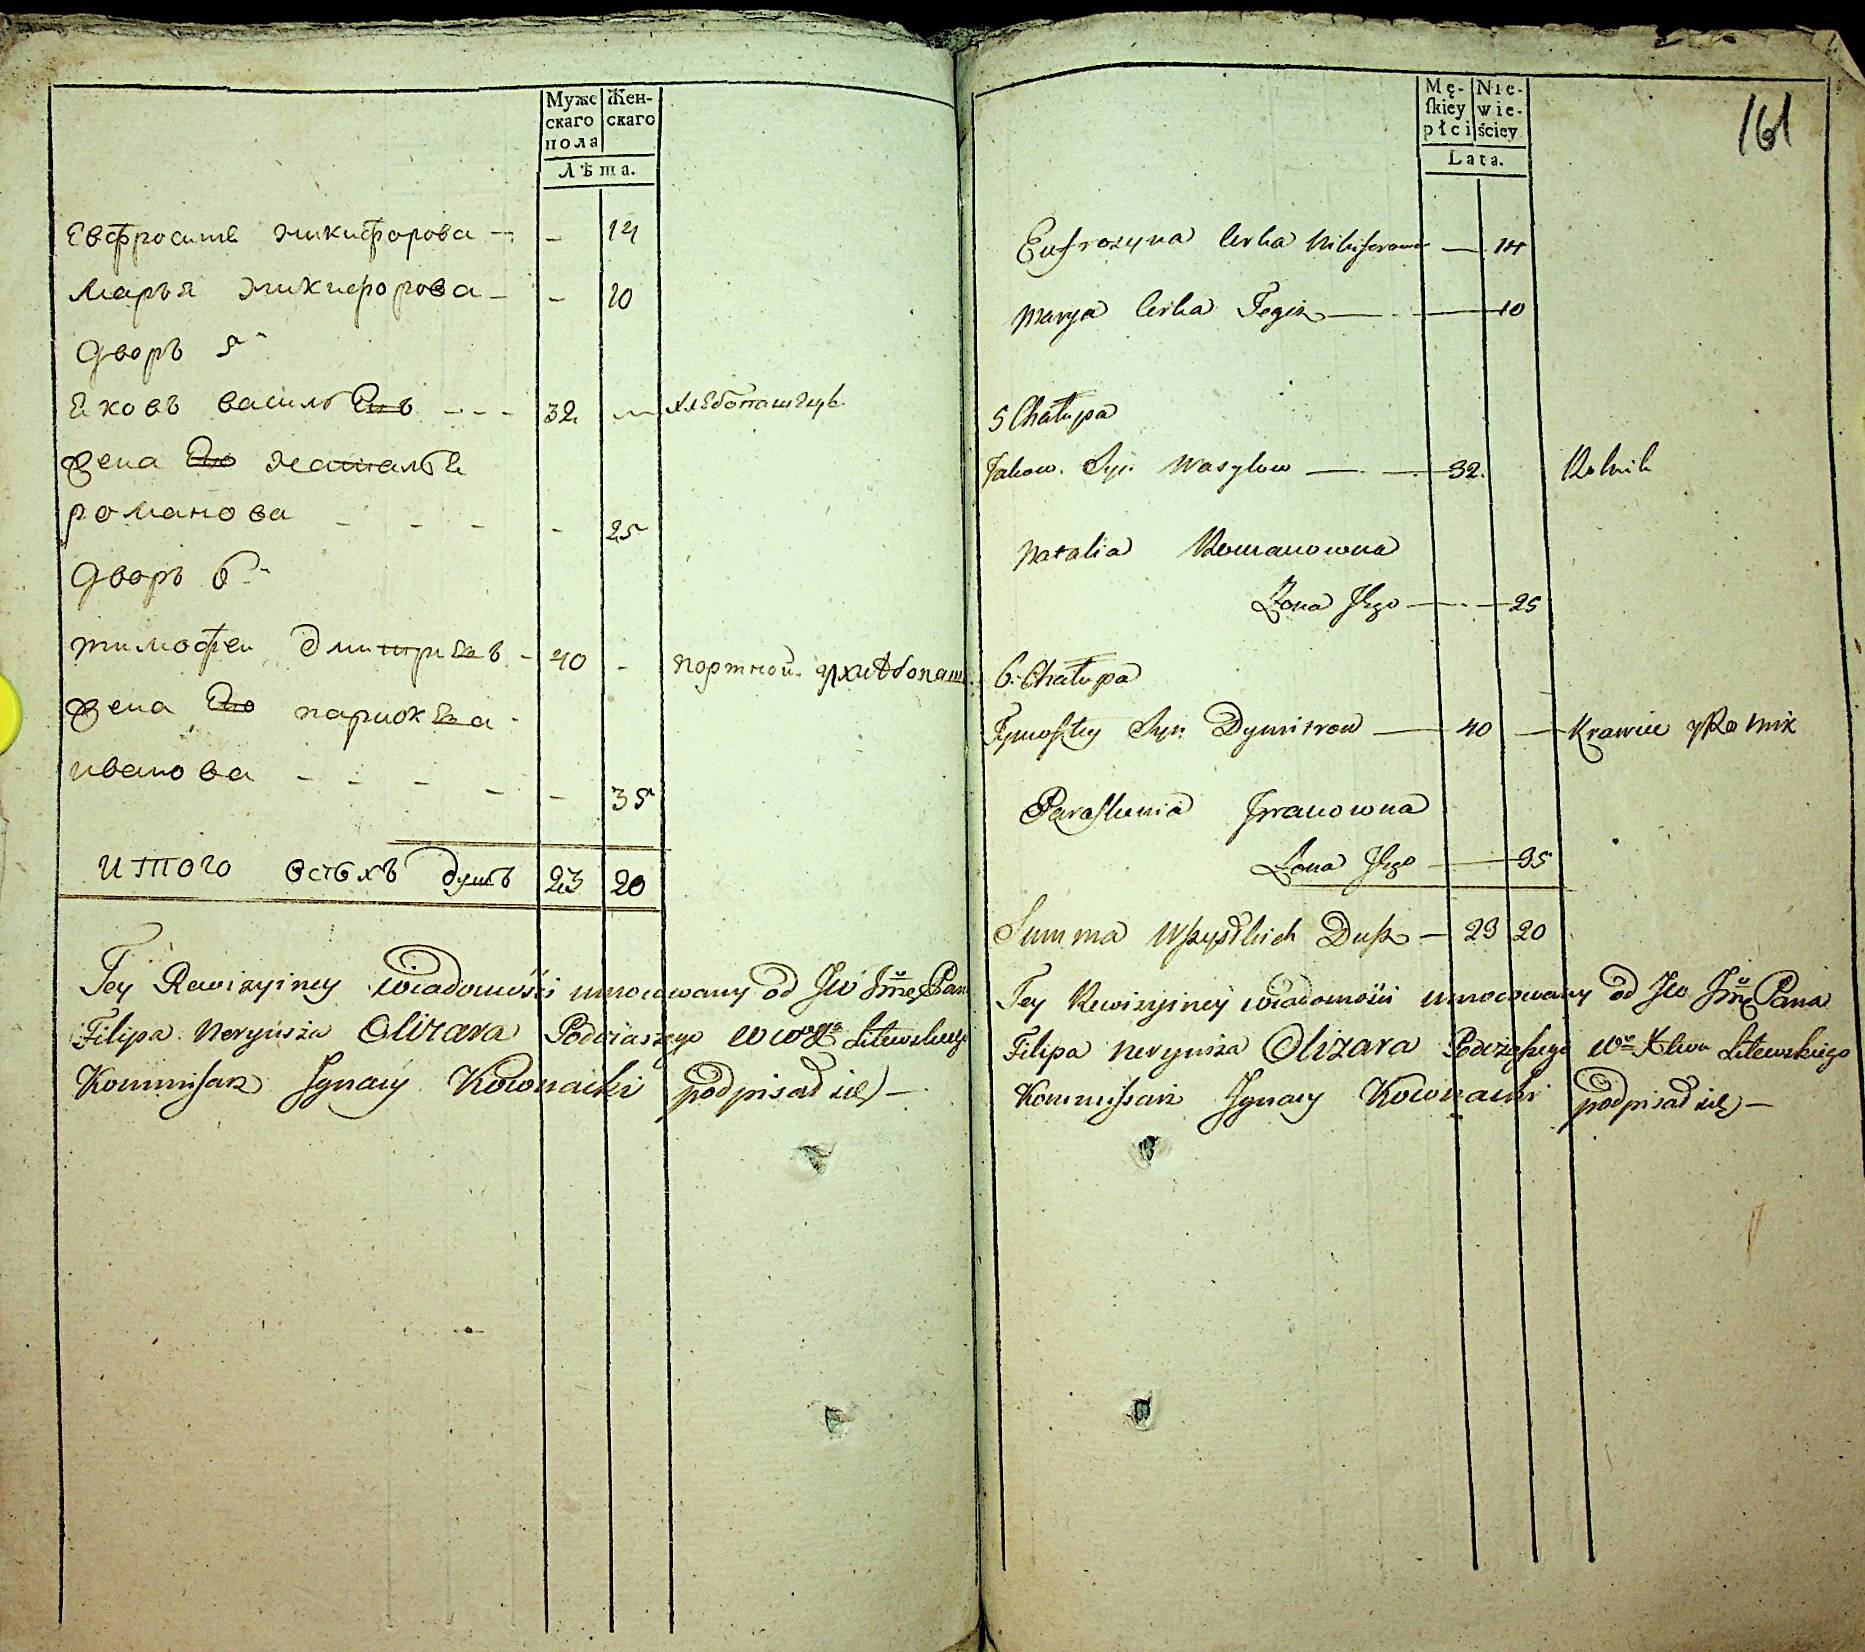 Мужс Жен-
скаго скаго
пола
Лѣта.
Евфросинѣ Никифорова - - 14
Марья Никифорова - - 10
Дворъ 5
Яковъ василь - - - 32 - хлебопашецъ
жена его Наталья
романова - - - - 25
Дворъ 6
тимофеи дмитриевъ - 40 - портной. и хлѣбопаш.
жена его парискева
иванова - - - - - 35
итого всѣхъ душъ 23 20
Tey Rewizyiney wiadomości umocowany od JW Jmę Pan
Filipa Neryusza Olizara Podczaszego W Litewskiego
Kommissarz Ignacy Kownacki podpisał się —
Mę- Nie-
skiey wie-
płci ściey
Lata.
161
Eufrozyna Corka Nikiforowa — 14
Marya Corka Tegiż — 10
5 Chałupa
Jakow Syn Wasylow — 32. Rolnik
Natalia Romanowna
Żona Jego — 25
6. Chałupa
Tymofiey Syn Dymitrow — 40 — Krawiec y Rolnik
Paraskiewia Iwanowna
Żona Jego — 35
Summa Wszystkich Dusz — 23 20
Tey Rewizyiney wiadomości umocowany od JW Jmę Pana
Filipa Neryusza Olizara Podczaszego Wo Litewskiego
Kommissarz Ignacy Kownacki podpisał się —